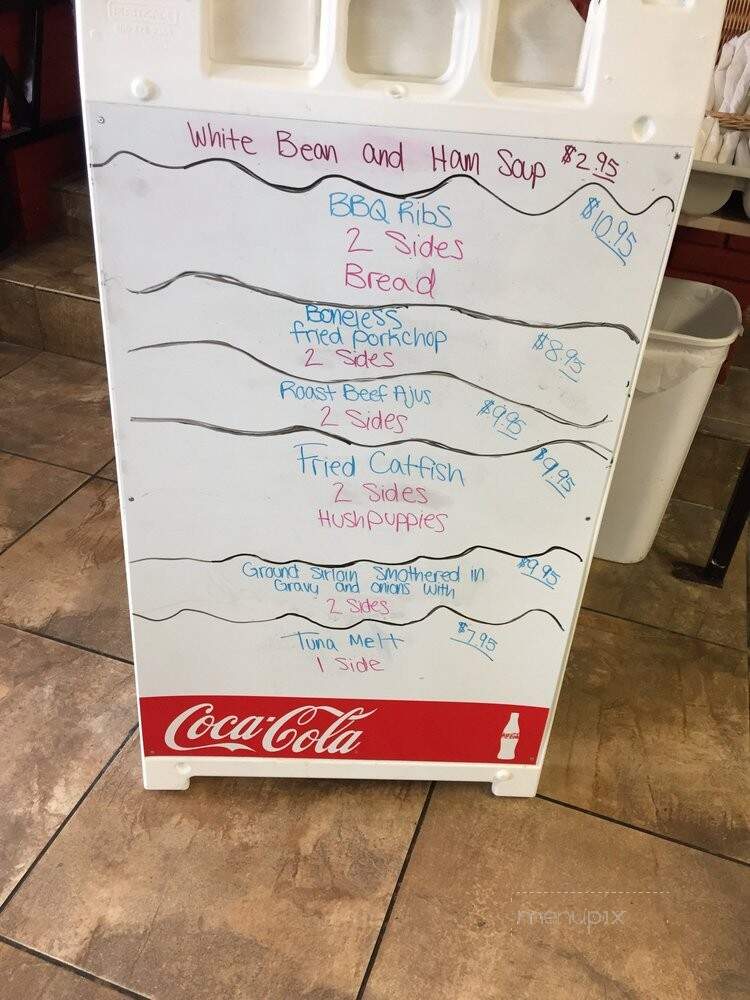 White Bean and Ham Soup $2.95
BBQ Ribs $10.95
2 Sides
Bread
Boneless
fried porkchop $8.95
2 Sides
Roast Beef Ajus $9.95
2 Sides
Fried Catfish $9.95
2 Sides
Hushpuppies
Ground Sirloin Smothered in $9.95
Gravy and onions with
2 Sides
Tuna Melt $7.95
1 Side
Coca-Cola
menupix